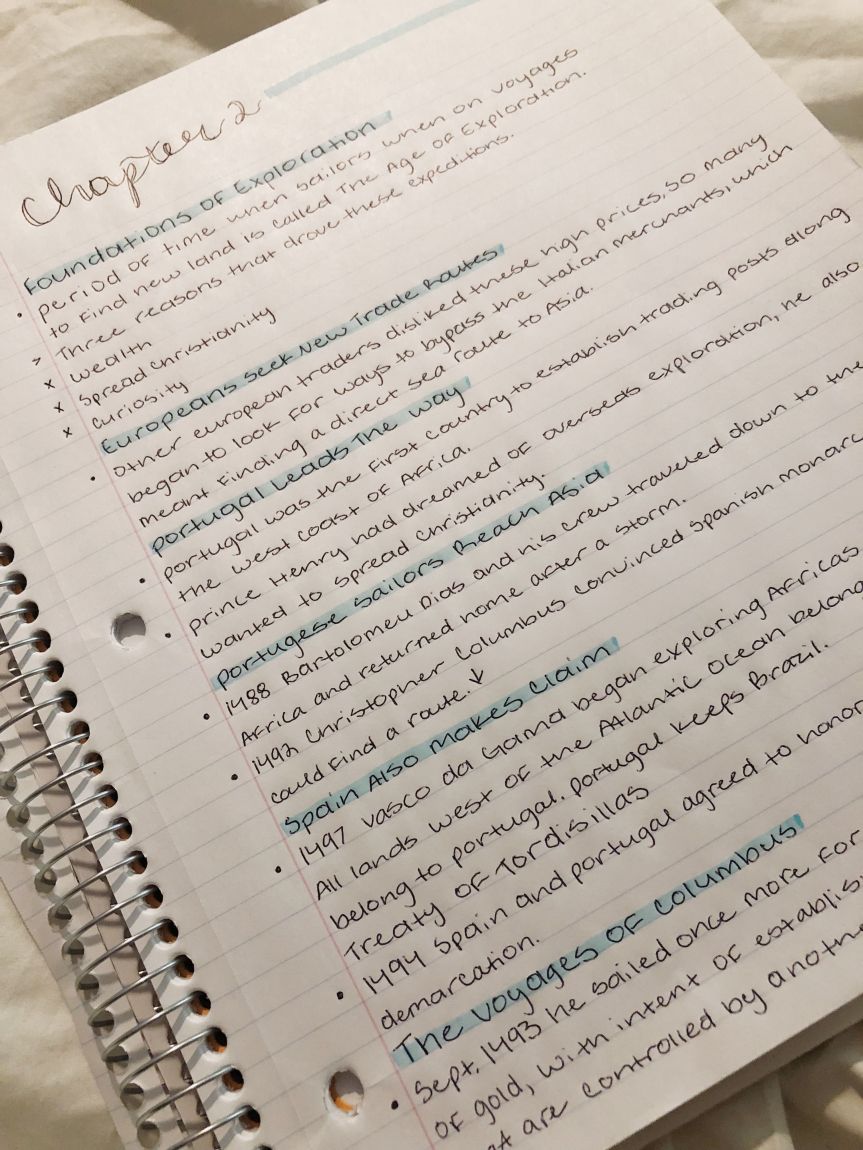 Chapter 2
Foundations of Exploration
• Period of time when sailors when on voyages
to find new land is called The Age of Exploration.
> Three reasons that drove these expeditions.
x wealth
x spread christianity
x curiosity
Europeans Seek New Trade Routes
• other european traders disliked these high prices, so many
began to look for ways to bypass the Italian merchants, which
meant finding a direct sea route to Asia.
Portugal Leads The Way
• portugal was the first country to establish trading posts along
the west coast of Africa.
• prince Henry had dreamed of overseas exploration, he also
wanted to spread christianity.
Portugese Sailors Reach Asia
• 1488 Bartolomeu Dias and his crew traveled down to the
Africa and returned home after a storm.
• 1492 Christopher Columbus convinced Spanish monarc
could find a route. ↓
Spain Also Makes Claim
• 1497 vasco da Gama began exploring Africas
All lands west of the Atlantic Ocean belong
belong to portugal. portugal keeps Brazil.
Treaty of Tordisillas
• 1494 Spain and portugal agreed to honor
demarcation.
The Voyages of Columbus
• Sept. 1493 he sailed once more for
of gold, with intent of establis
are controlled by anothe